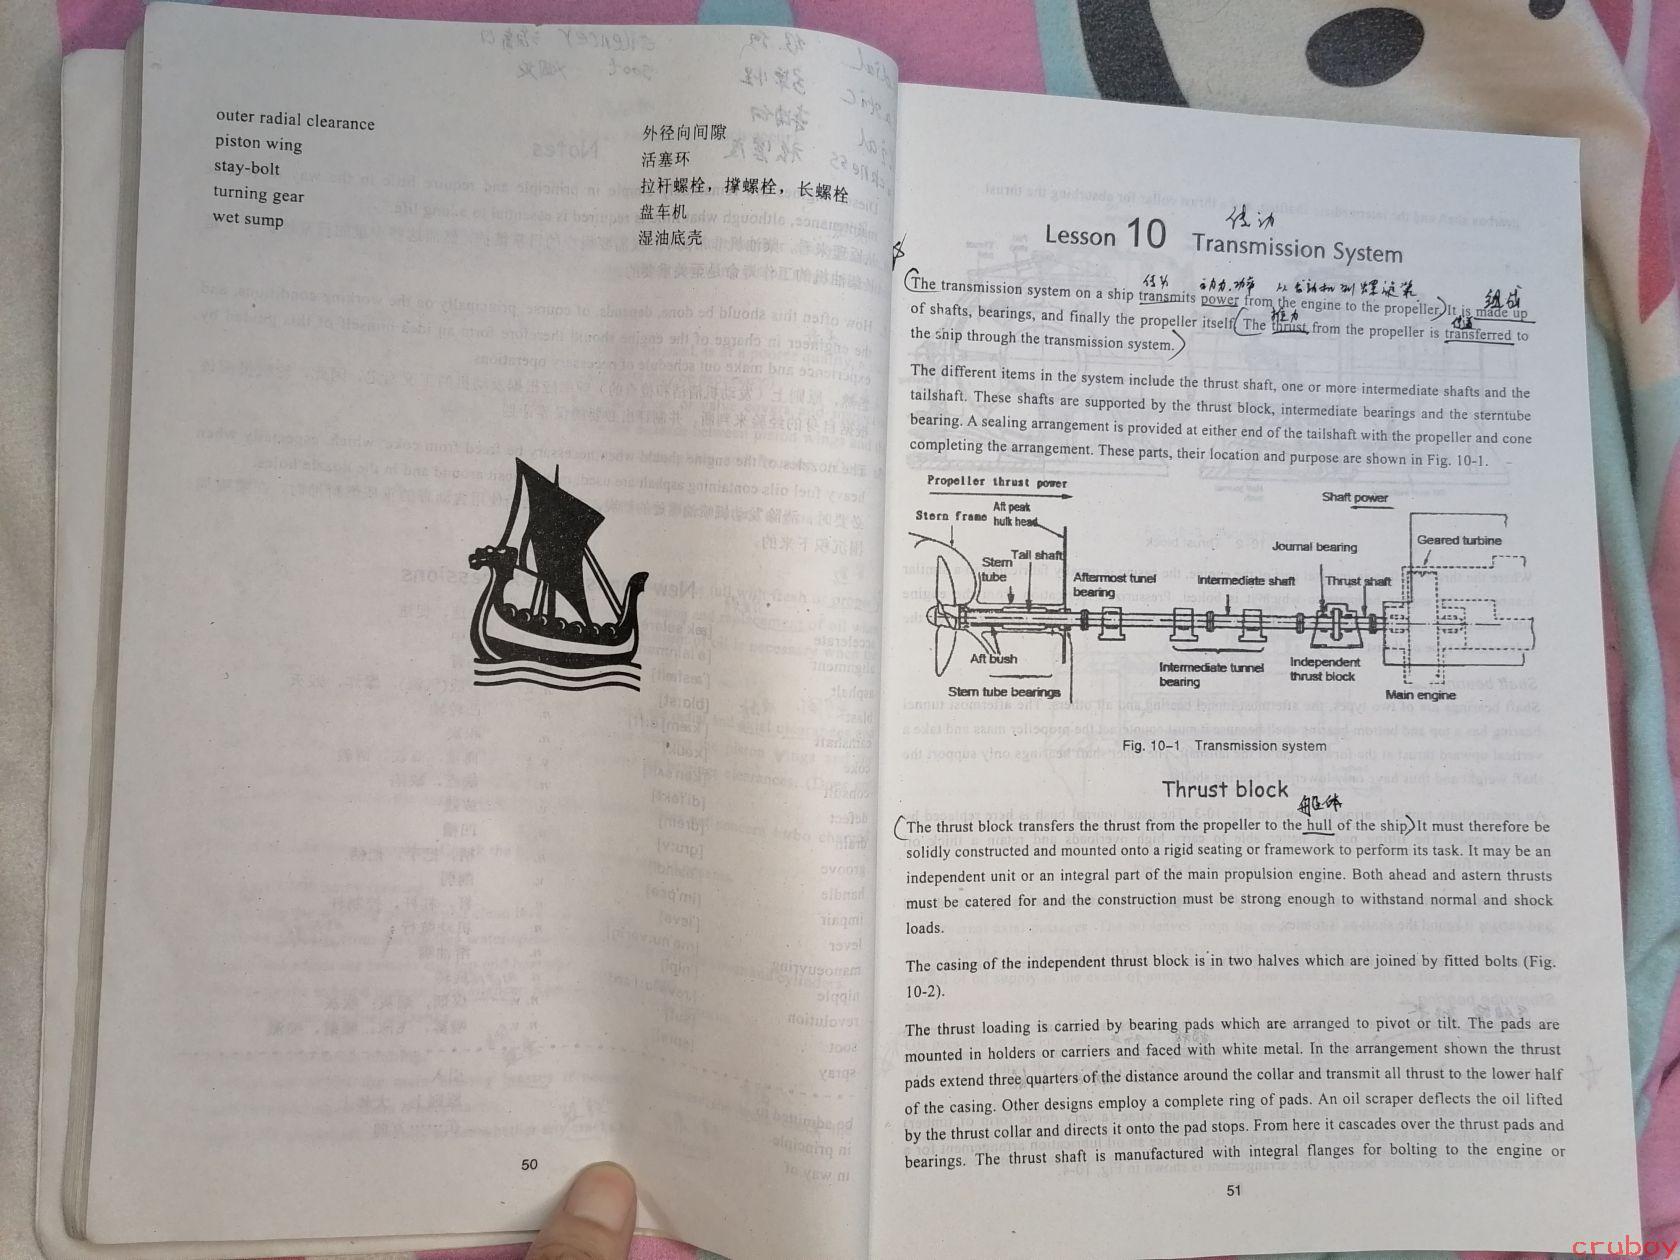 outer radial clearance 外径向间隙
piston wing 活塞环
stay-bolt 拉杆螺栓，撑螺栓，长螺栓
turning gear 盘车机
wet sump 湿油底壳
50
传动
Lesson 10 Transmission System
动力.功率 从发动机到螺旋桨 组成
The transmission system on a ship transmits power from the engine to the propeller. It is made up
推力
of shafts, bearings, and finally the propeller itself. The thrust from the propeller is transferred to
the ship through the transmission system.
The different items in the system include the thrust shaft, one or more intermediate shafts and the
tailshaft. These shafts are supported by the thrust block, intermediate bearings and the sterntube
bearing. A sealing arrangement is provided at either end of the tailshaft with the propeller and cone
completing the arrangement. These parts, their location and purpose are shown in Fig. 10-1.
Propeller thrust power
Shaft power
Stern frame
Aft peak
hulk head
Geared turbine
Journal bearing
Tail shaft
Stern
tube
Aftermost tunel
bearing
Intermediate shaft
Thrust shaft
Aft bush
Intermediate tunnel
bearing
Independent
thrust block
Stern tube bearings
Main engine
Fig. 10-1 Transmission system
Thrust block
船体
The thrust block transfers the thrust from the propeller to the hull of the ship. It must therefore be
solidly constructed and mounted onto a rigid seating or framework to perform its task. It may be an
independent unit or an integral part of the main propulsion engine. Both ahead and astern thrusts
must be catered for and the construction must be strong enough to withstand normal and shock
loads.
The casing of the independent thrust block is in two halves which are joined by fitted bolts (Fig.
10-2).
The thrust loading is carried by bearing pads which are arranged to pivot or tilt. The pads are
mounted in holders or carriers and faced with white metal. In the arrangement shown the thrust
pads extend three quarters of the distance around the collar and transmit all thrust to the lower half
of the casing. Other designs employ a complete ring of pads. An oil scraper deflects the oil lifted
by the thrust collar and directs it onto the pad stops. From here it cascades over the thrust pads and
bearings. The thrust shaft is manufactured with integral flanges for bolting to the engine or
51
cruboy